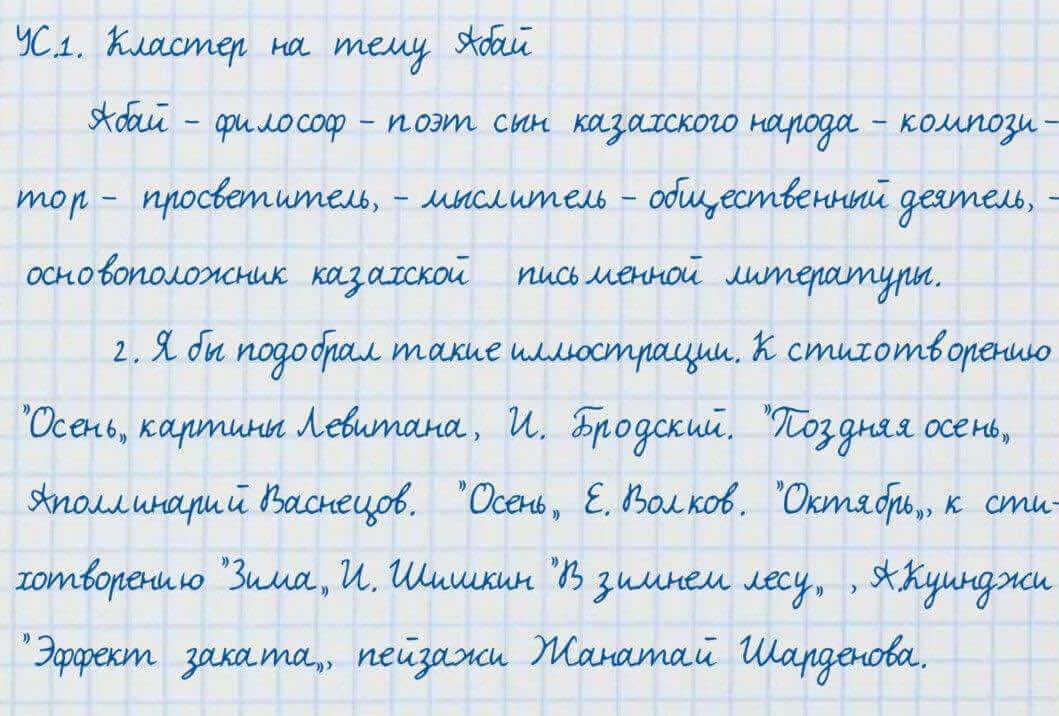 УС.1. Кластер на тему Абай
Абай - философ - поэт сын казахского народа - компози-
тор - просветитель, - мыслитель - общественный деятель, -
основоположник казахской письменной литературы.
2. Я бы подобрал такие иллюстрации. К стихотворению
"Осень„ картины Левитана, И. Бродский. "Поздняя осень„
Аполлинарий Васнецов. "Осень„ Е. Волков. "Октябрь„, к сти-
хотворению "Зима„ И. Шишкин "В зимнем лесу„ , А.Куинджи
"Эффект заката„, пейзажи Жанатай Шарденова.